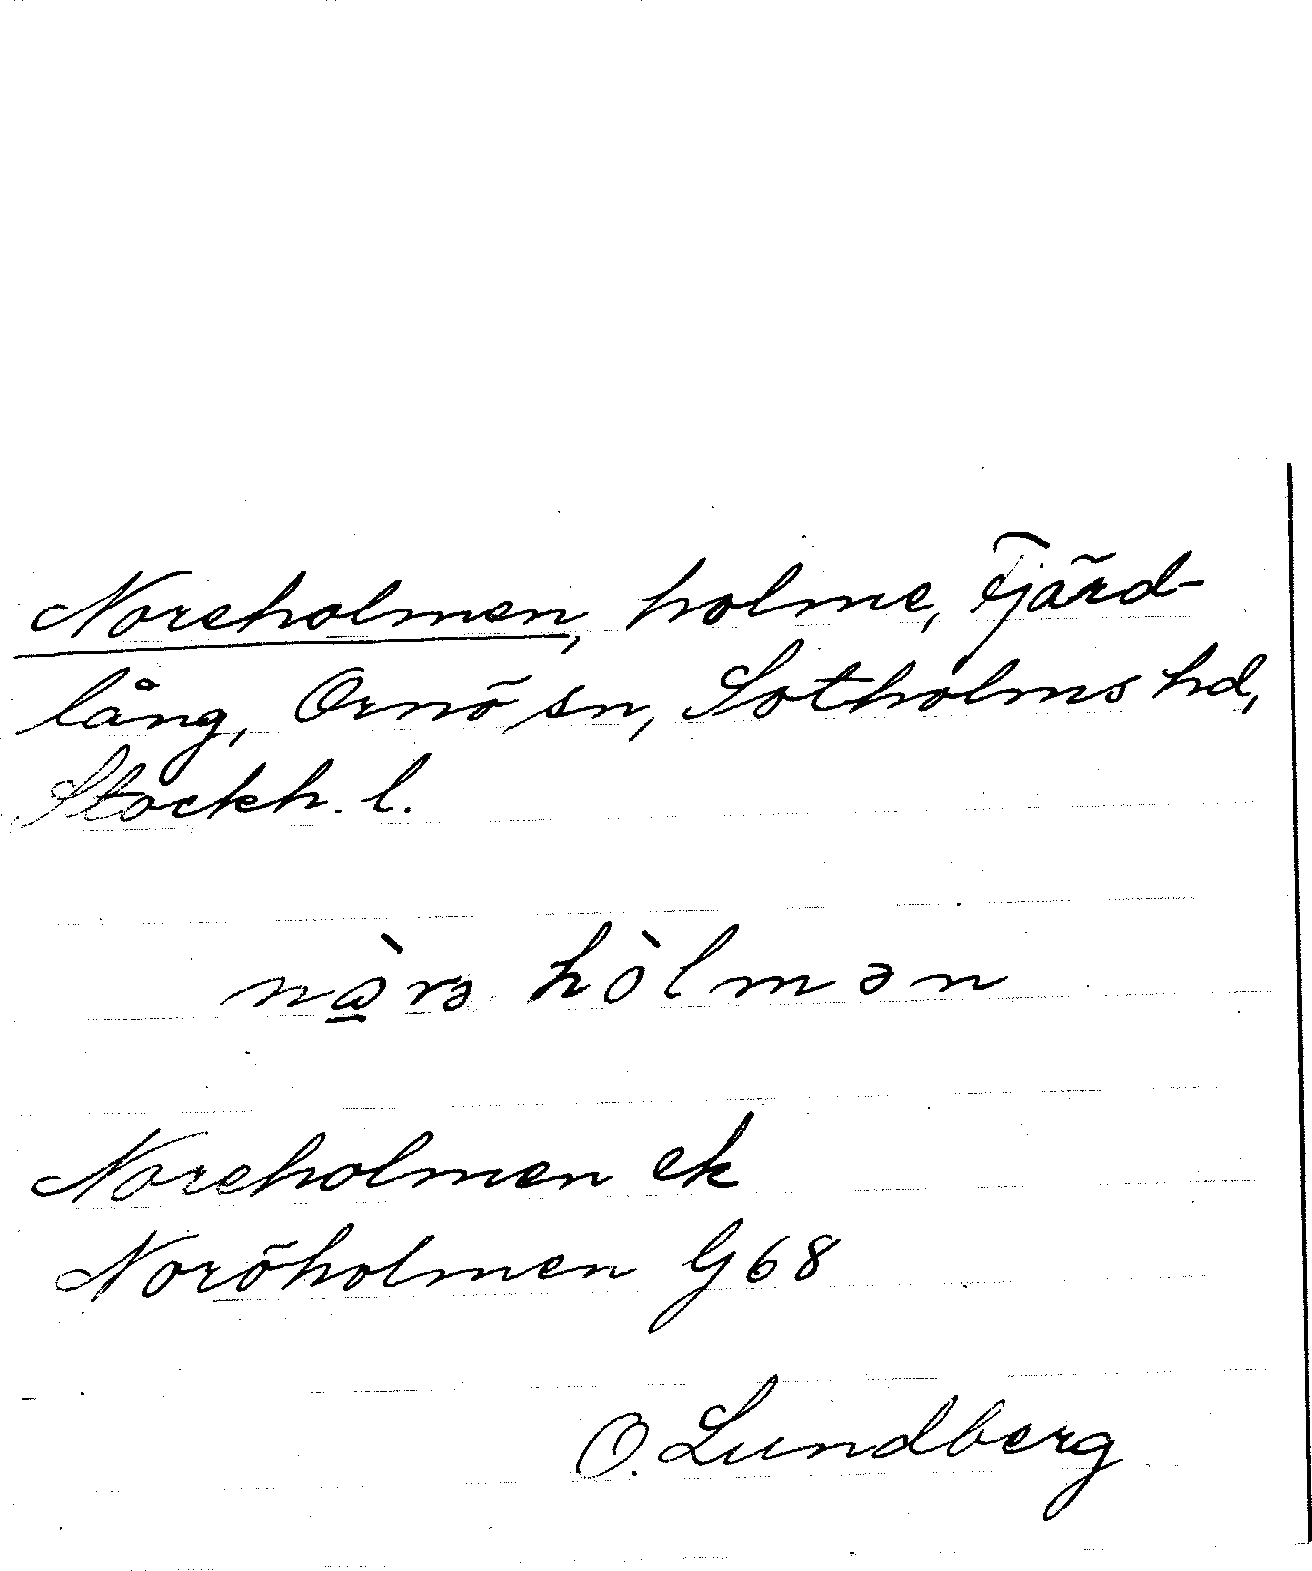 Noreholmen, holme, Fjärd-
lång, Ornö sn, Sotholms hd,
Stockh. l.
hòlmən
Noreholmen ek
Noröholmen G68
O. Lundberg